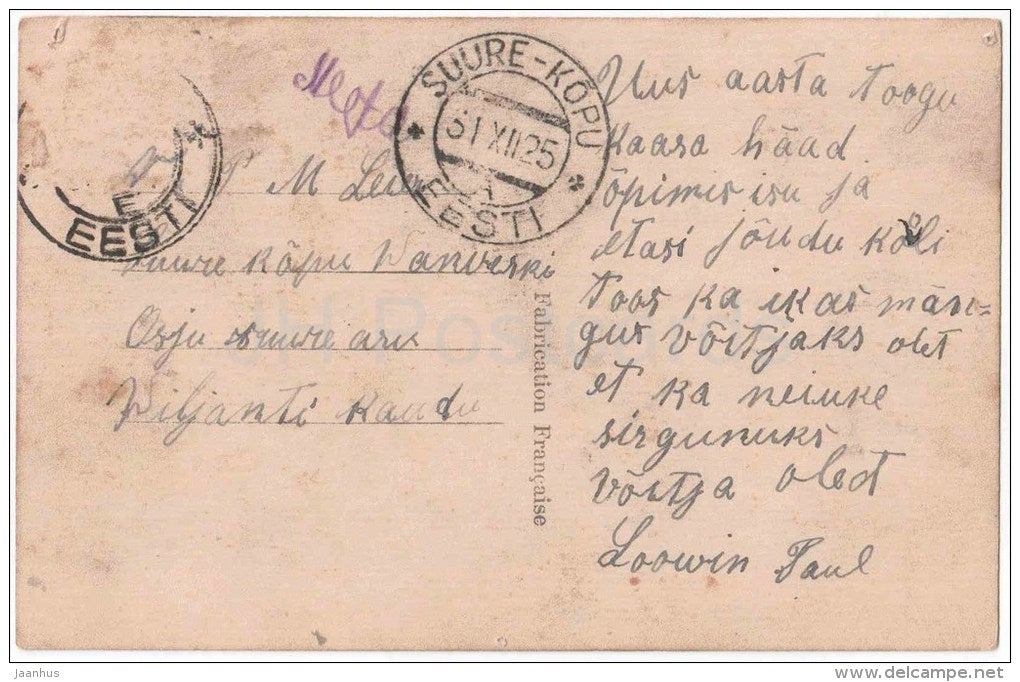 SUURE-KÕPU
31 XII 25
EESTI
E
EESTI
P M
Suure Kõpu Wanveski
Orju suure aru
Wiljanti kaudu
Fabrication Française
Uus aasta toogu
kaasa hääd
õpimis isu ja
etasi jõudu kõli
toos ka ikas män-
gus võitjaks olet
et ka neiuke
sirgunuks
võitja oled
Loowin Paul
JH Postcards
jaanhus
www.delcampe.net